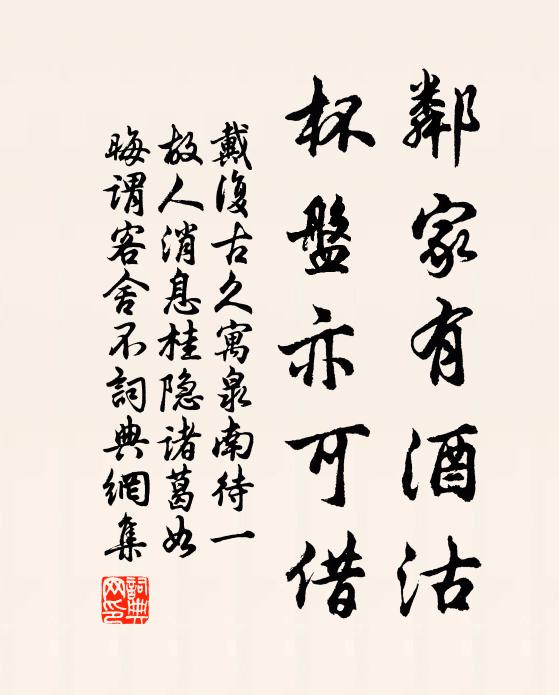 鄰家有酒沽
杯盤亦可借
戴復古久寓泉南待一
故人消息桂隐諸葛如
晦谓客舍不詞典網集
詞典網印